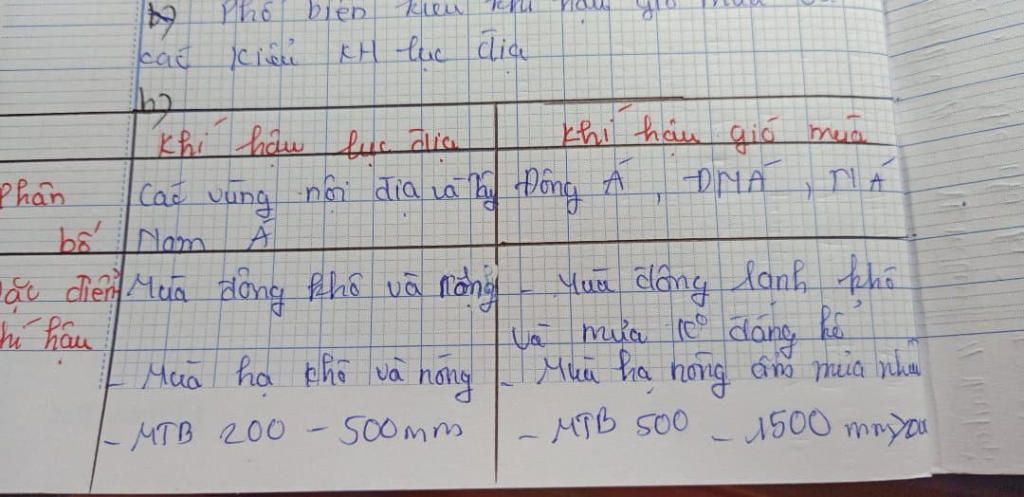 b) Phổ biến kiểu khí hậu gió mùa
các kiểu KH lục địa
b)
Khí hậu lục địa
Khí hậu gió mùa
Phân bố
Các vùng nội địa và Tây Nam Á
Đông Á, ĐNÁ, NÁ
khí hậu
Mùa đông khô và nóng
- Mùa đông lạnh khô
và mưa ko đáng kể
- Mùa hạ khô và nóng
- Mùa hạ nóng ẩm mưa nhiều
- MTB 200 - 500mm
- MTB 500 - 1500 mm